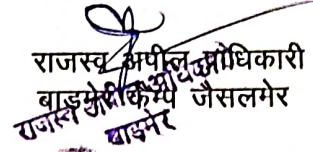 राजस्व अपील प्राधिकारी
बाड़मेर कैम्प जैसलमेर
राजस्व अपील
बाड़मेर